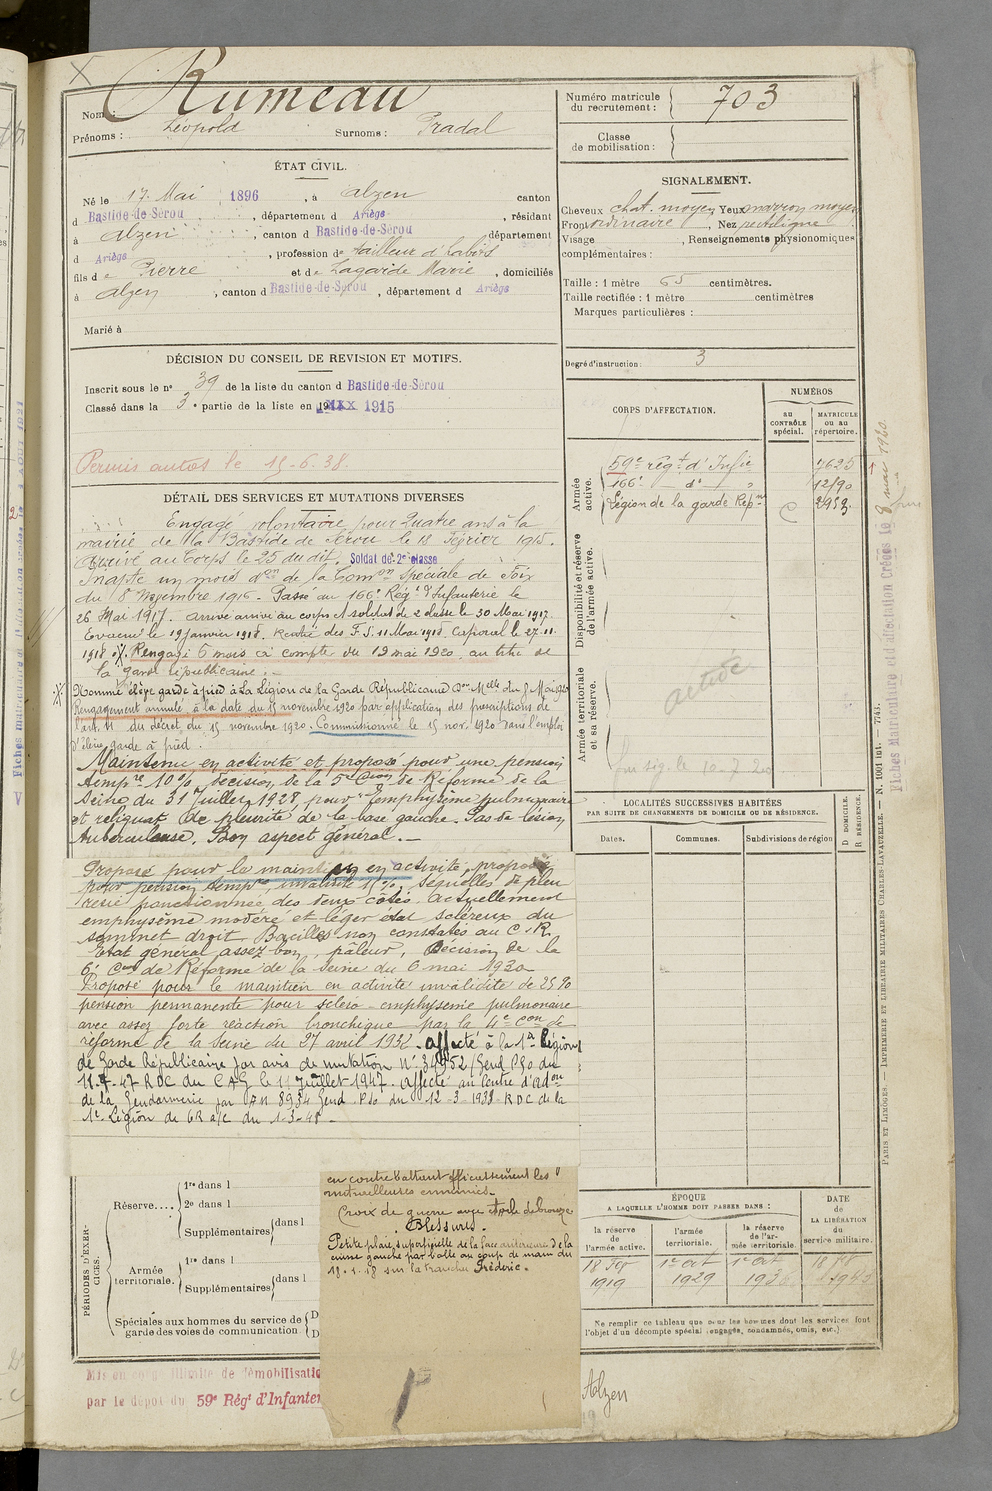 Rumeau
Nom :
Prénoms : Léopold Surnoms : Pradal
Numéro matricule du recrutement : 703
Classe de mobilisation :
ÉTAT CIVIL.
Né le 17 Mai 1896, à Alzen canton
d Bastide-de-Sérou, département d Ariège, résidant
à Alzen, canton d Bastide-de-Sérou département
d Ariège, profession de tailleur d'habits
fils de Pierre et de Lagarde Marie, domiciliés
à Alzen, canton d Bastide-de-Sérou, département d Ariège
Marié à
SIGNALEMENT.
Cheveux chat. moyen Yeux marron moyen
Front ordinaire, Nez rectiligne
Visage , Renseignements physionomiques
complémentaires :
Taille : 1 mètre 65 centimètres.
Taille rectifiée : 1 mètre centimètres
Marques particulières :
Degré d'instruction : 3
DÉCISION DU CONSEIL DE REVISION ET MOTIFS.
Inscrit sous le nº 39 de la liste du canton d Bastide-de-Sérou
Classé dans la 3e partie de la liste en 1915
Permis autos le 15-6-38.
CORPS D'AFFECTATION.
NUMÉROS
au CONTRÔLE spécial.
MATRICULE ou au répertoire.
Armée active.
59e régt d'Infie 7625
166e d° 12190
Légion de la garde Répne
Disponibilité et réserve de l'armée active.
Armée territoriale et sa réserve.
active
DÉTAIL DES SERVICES ET MUTATIONS DIVERSES
Engagé volontaire pour quatre ans à la
mairie de la Bastide de Sérou le 18 Février 1915.
Arrivé au Corps le 25 du dit, Soldat de 2e classe
Inapte un mois don de la Comon spéciale de Foix
du 8 Décembre 1916. Passé au 166e Régt d'Infanterie le
26 Mai 1917. arrivé au corps et soldat de 2 classe le 30 Mai 1917.
Evacué le 19 janvier 1918. Rentré des F.S. 11 Mai 1918. Caporal le 27.11.
1918. Rengagé 6 mois à compter du 19 mai 1920 au titre de
la garde républicaine.
Nommé élève garde à pied à la Légion de la Garde Républicaine Don Melle du 8 Mai 1920
Rengagement annulé à la date du 15 novembre 1920 par application des prescriptions de
l'art. 11 du décret du 15 novembre 1920. Commissionné le 15 nov. 1920 dans l'emploi
d'élève garde à pied.
Maintenu en activité et proposé pour une pension
tempre 10% décision de la 5e Con de Réforme de la
Seine du 31 Juillet 1928, pour "emphysème pulmonaire
et reliquat de pleurite de la base gauche. Pas de lésion
tuberculeuse. Bon aspect général.
Proposé pour le maintien en activité, proposé
pour pension tempre, invalidité 15%, séquelles de pleu
résie ponctionnée des deux côtés. Actuellement
emphysème modéré et léger état scléreux du
sommet droit. Bacilles non constatés au C.R.
Etat général assez bon, pâleur, Décision de la
6e Con de Réforme de la Seine du 6 mai 1930
Proposé pour le maintien en activité invalidité de 25%
pension permanente pour scléro-emphysémie pulmonaire
avec assez forte réaction bronchique par la 4e Con de
réforme de la Seine du 27 avril 1932. Affecté à la 1e Légion
de Garde Républicaine par avis de mutation N° 34952/Gend. P.So du
11-7-47 RDC du CAG le 1 Juillet 1947. Affecté au Centre d'Adon
de la Gendarmerie par AM 8934 Gend. P.So du 12-3-1938 RDC de la
1e Légion de GR a/c du 1-3-48.
LOCALITÉS SUCCESSIVES HABITÉES
PAR SUITE DE CHANGEMENTS DE DOMICILE OU DE RÉSIDENCE.
Dates. Communes. Subdivisions de région
D DOMICILE. R RÉSIDENCE.
PÉRIODES D'EXERCICES.
Réserve....
1re dans l
2e dans l
Supplémentaires dans l
Armée territoriale.
1re dans l
Supplémentaires dans l
Spéciales aux hommes du service de
garde des voies de communication
en contrebattant efficacement les
mitrailleuses ennemies.
Croix de guerre avec étoile de bronze
Blessures.
Petite plaie superficielle de la face antérieure de la
cuisse gauche par balle au coup de main du
18.1.18 sur la tranchée Frédéric.
ÉPOQUE
A LAQUELLE L'HOMME DOIT PASSER DANS :
la réserve de l'armée active.
l'armée territoriale.
la réserve de l'armée territoriale.
DATE de LA LIBÉRATION du service militaire.
18 Fev 1919
1er Oct 1929
Ne remplir ce tableau que pour les hommes dont les services font
l'objet d'un décompte spécial (engagés, condamnés, omis, etc.)
Mis en congé illimité de démobilisatio
par le dépôt du 59e Régt d'Infanter
Alzen
PARIS ET LIMOGES. — IMPRIMERIE ET LIBRAIRIE MILITAIRES CHARLES-LAVAUZELLE. — N. 1001 int. — 7743.
Fiches Matriculaire et d'affectation Créées le 8 mai 1920.